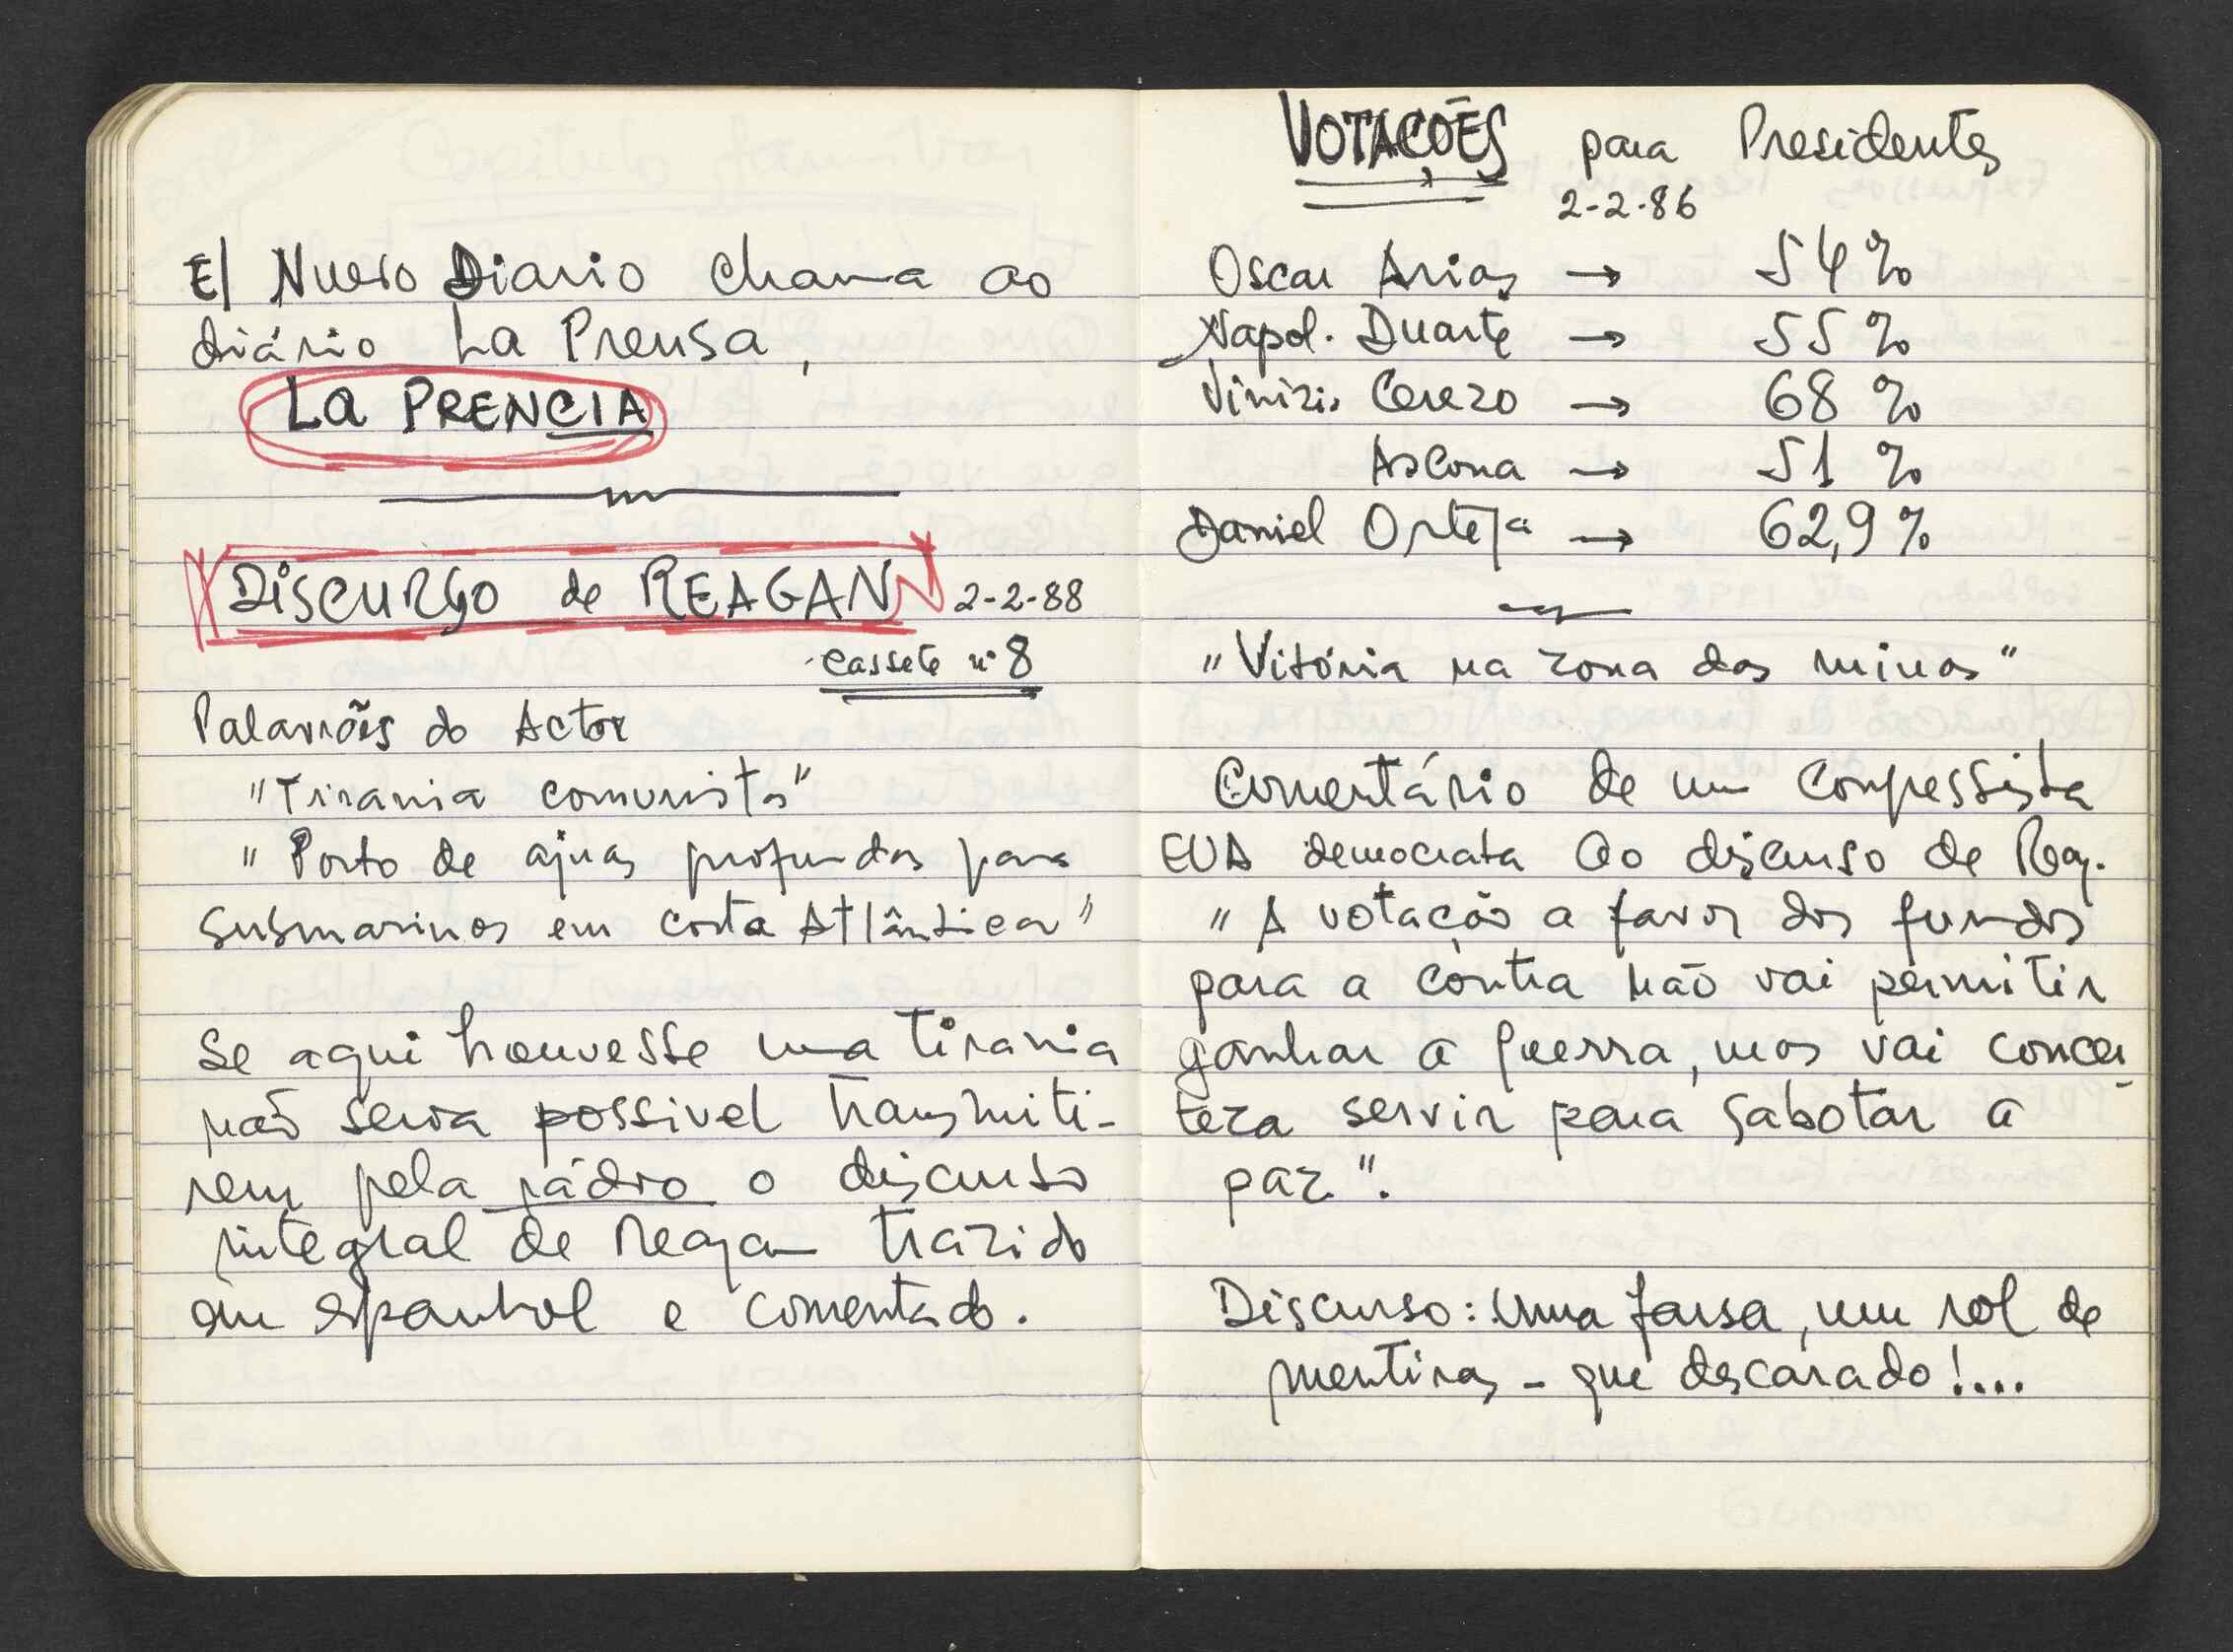 El Nuevo Diario chama ao
diário La Prensa,
La PRENCIA
DiSCURSO de REAGAN 2-2-88
cassete nº 8
Palavrões do Actor
"Tirania comunista"
"Porto de águas profundas para
submarinos em costa Atlântica"
Se aqui houvesse uma tirania
não seria possivel transmiti-
rem pela rádio o discurso
integral de Reagan trazido
em espanhol e comentado.
VOTAÇÕES para Presidentes
2-2-86
Oscar Arias → 54%
Napol. Duarte → 55%
Vinizio Cerezo → 68%
Ascona → 51%
Daniel Ortega → 62,9%
"Vitória na zona das minas"
Comentário de um Congressista
EUA democrata ao discurso de Reag.
"A votação a favor dos fundos
para a contra não vai permitir
ganhar a guerra, mas vai concer
teza servir para sabotar a
paz".
Discurso: Uma farsa, um rol de
mentiras - que descarado!....